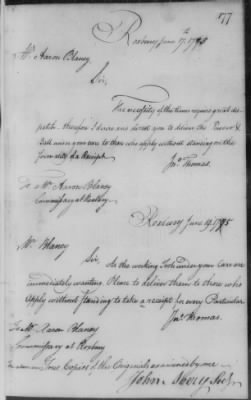 177
Roxbury June 17th, 1775
Mr. Aaron Blaney
Sir,
The necessity of the times requires great dis-
patch. therefore I desire and direct you to deliver the Powder &
Ball in your care to those who apply without standing on the
formality of a Receipt
Jno. Thomas.
To Mr. Aaron Blaney
Commissary at Roxbury
Roxbury June 19, 1775
Mr. Blaney
Sir, As the working Tools under your Care are
immediately wanting Please to deliver them to those who
Apply without standing to take a receipt for every Particular
Jno. Thomas.
To Mr. Aaron Blaney
Commissary at Roxbury
True Copies of the Originals as examined by me
John Avery